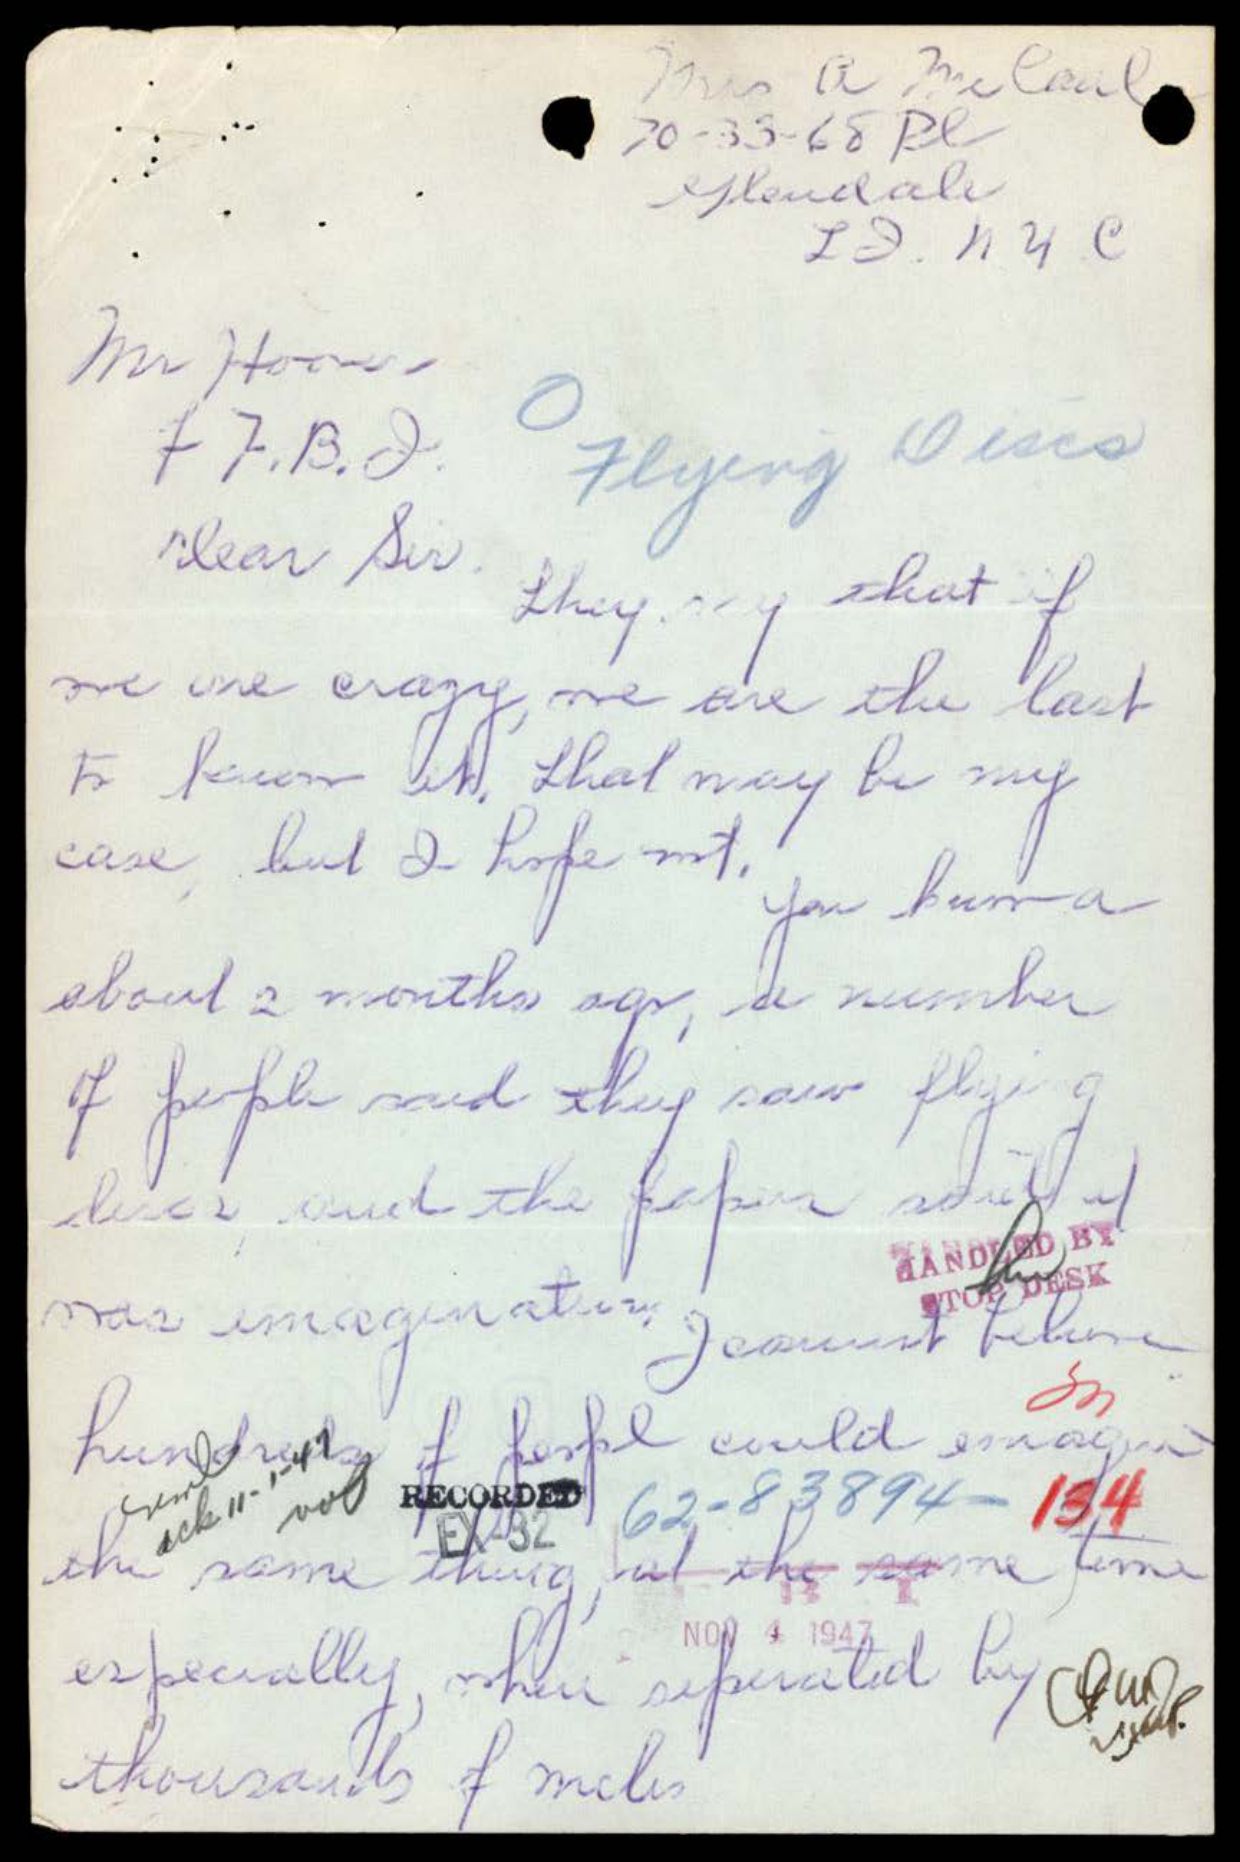 Mrs A McCaul
70-33-68 Pl
Glendale
L I. N Y C
Mr Hoover
F.B.I.
Flying Discs
Dear Sir.
They say that if
we are crazy, we are the last
to know it. That may be my
case, but I hope not.
You know
about 2 months ago, a number
of people said they saw flying
discs, and the papers said it
HANDLED BY
STOP DESK
was imagination. I cannot believe
hundreds of peopl could emagine
ack 11-1-47
RECORDED
62-83894-134
EX-32
the same thing, at the same time
NOV 4 1947
especially, when seperated by
thousands of miles